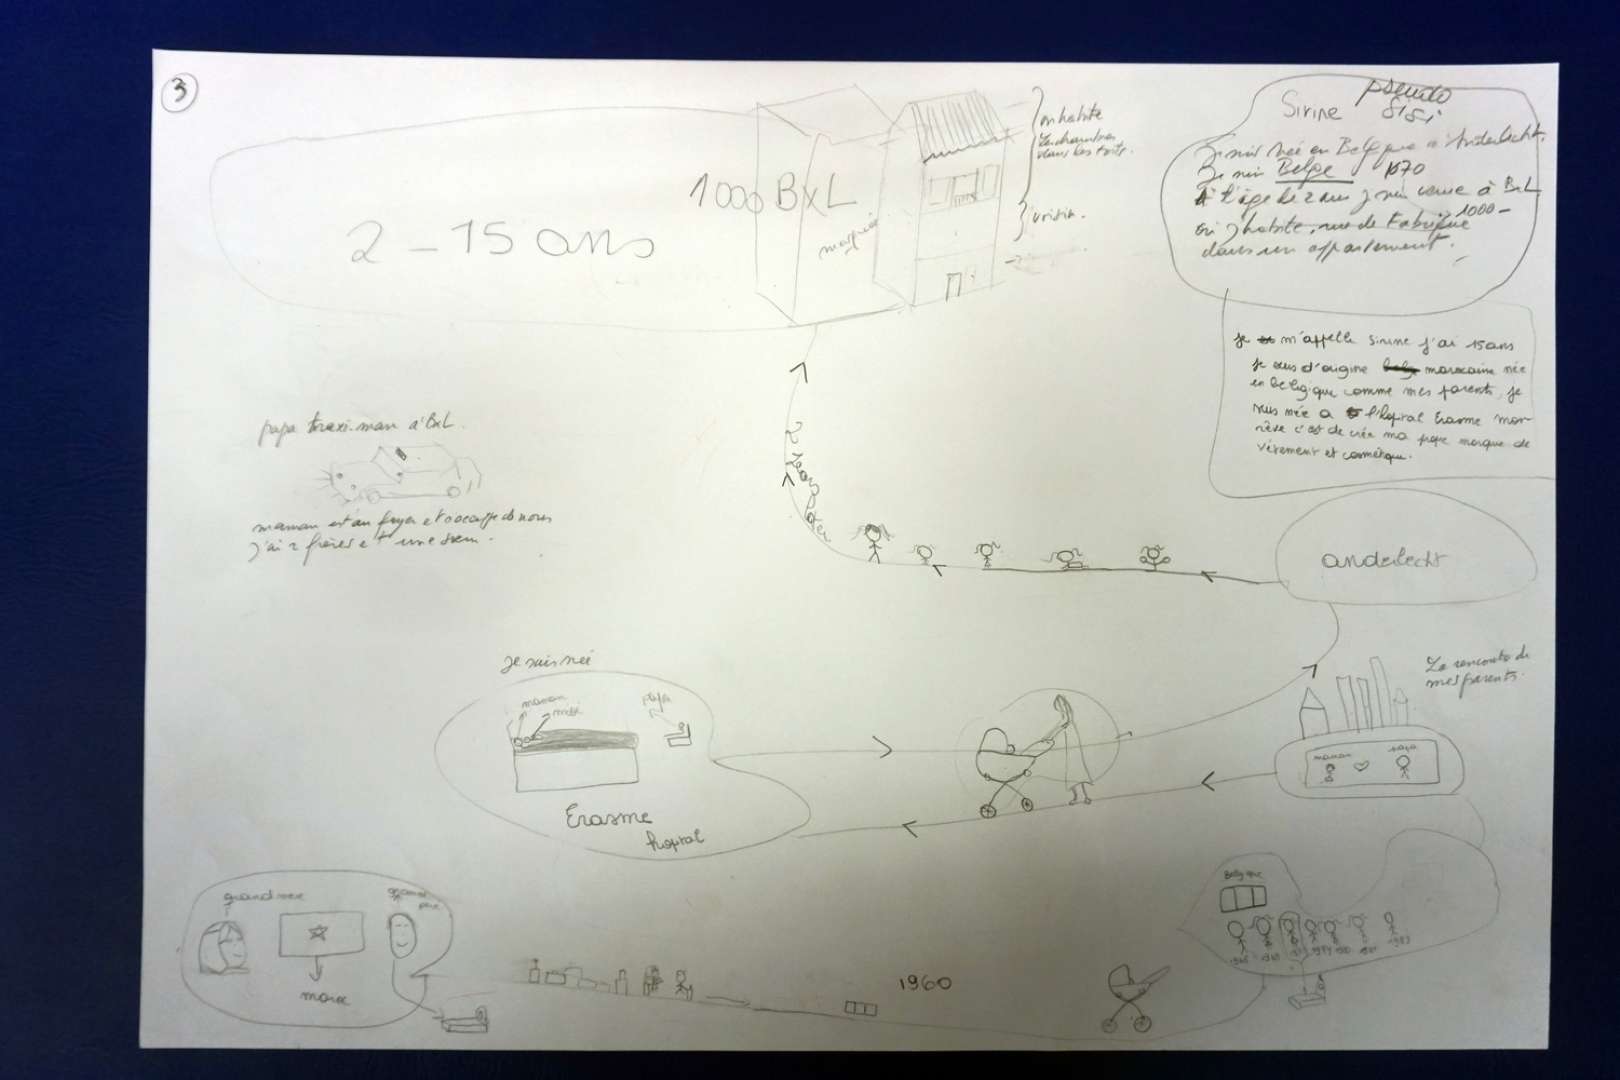 3
Sirine pseudo
Sisi
Je suis née en Belgique à Anderlecht.
Je suis Belge 1070
A l'âge de 2 ans je suis venue à BxL
1000-
où j'habite, rue de Fabrique
dans un appartement.
je m'appelle Sirine j'ai 15ans
je suis d'origine marocaine née
en belgique comme mes parents, je
suis née a l'hopital Erasme mon
rêve c'est de crée ma propre marque de
vêtement et cosmétique.
on habite
les chambres
dans les toits.
voisin.
1000 BxL
2 - 15 ans
papa taxi-man à BxL.
maman est au foyer et s'occupe de nous
j'ai 2 frères et une sœur.
2 ans
anderlecht
La rencontre de
mes parents.
maman papa
je suis née
maman
moi
papa
Erasme
hopital
grand mere
grand
pere
maroc
1960
Belgique